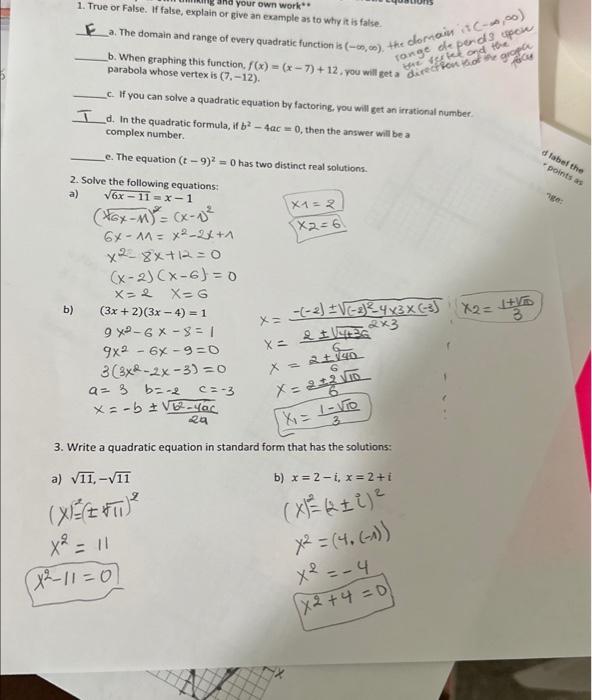 and your own work**
1. True or False. If false, explain or give an example as to why it is false.
F a. The domain and range of every quadratic function is (−∞,∞). the domain is (-∞,∞)
range depends upon
the vertex and the
direction that the graph
b. When graphing this function, f(x) = (x − 7) + 12, you will get a
parabola whose vertex is (7, −12).
c. If you can solve a quadratic equation by factoring, you will get an irrational number.
T d. In the quadratic formula, if b² − 4ac = 0, then the answer will be a
complex number.
e. The equation (t − 9)² = 0 has two distinct real solutions.
d label the
points as
2. Solve the following equations:
a) √6x − 11 = x − 1
(√6x-11)² = (x-1)²
6x - 11 = x² - 2x + 1
x² - 8x + 12 = 0
(x-2)(x-6) = 0
x = 2 x = 6
x1 = 2
x2 = 6
b) (3x + 2)(3x − 4) = 1
9x² - 6x - 8 = 1
9x² - 6x - 9 = 0
3(3x² - 2x - 3) = 0
a = 3 b = -2 c = -3
x = -b ± √b²-4ac
2a
x = -(-2) ± √(-2)² - 4x3x(-3)
2x3
x = 2 ± √4+36
6
x = 2 ± √40
6
x = 2 ± 2√10
6
x₁ = 1-√10
3
x2 = 1+√10
3
3. Write a quadratic equation in standard form that has the solutions:
a) √11, −√11
(x)² = (±√11)²
x² = 11
x² - 11 = 0
b) x = 2 − i, x = 2 + i
(x)² = (2 ± i)²
x² = (4, (-1))
x² = -4
x² + 4 = 0